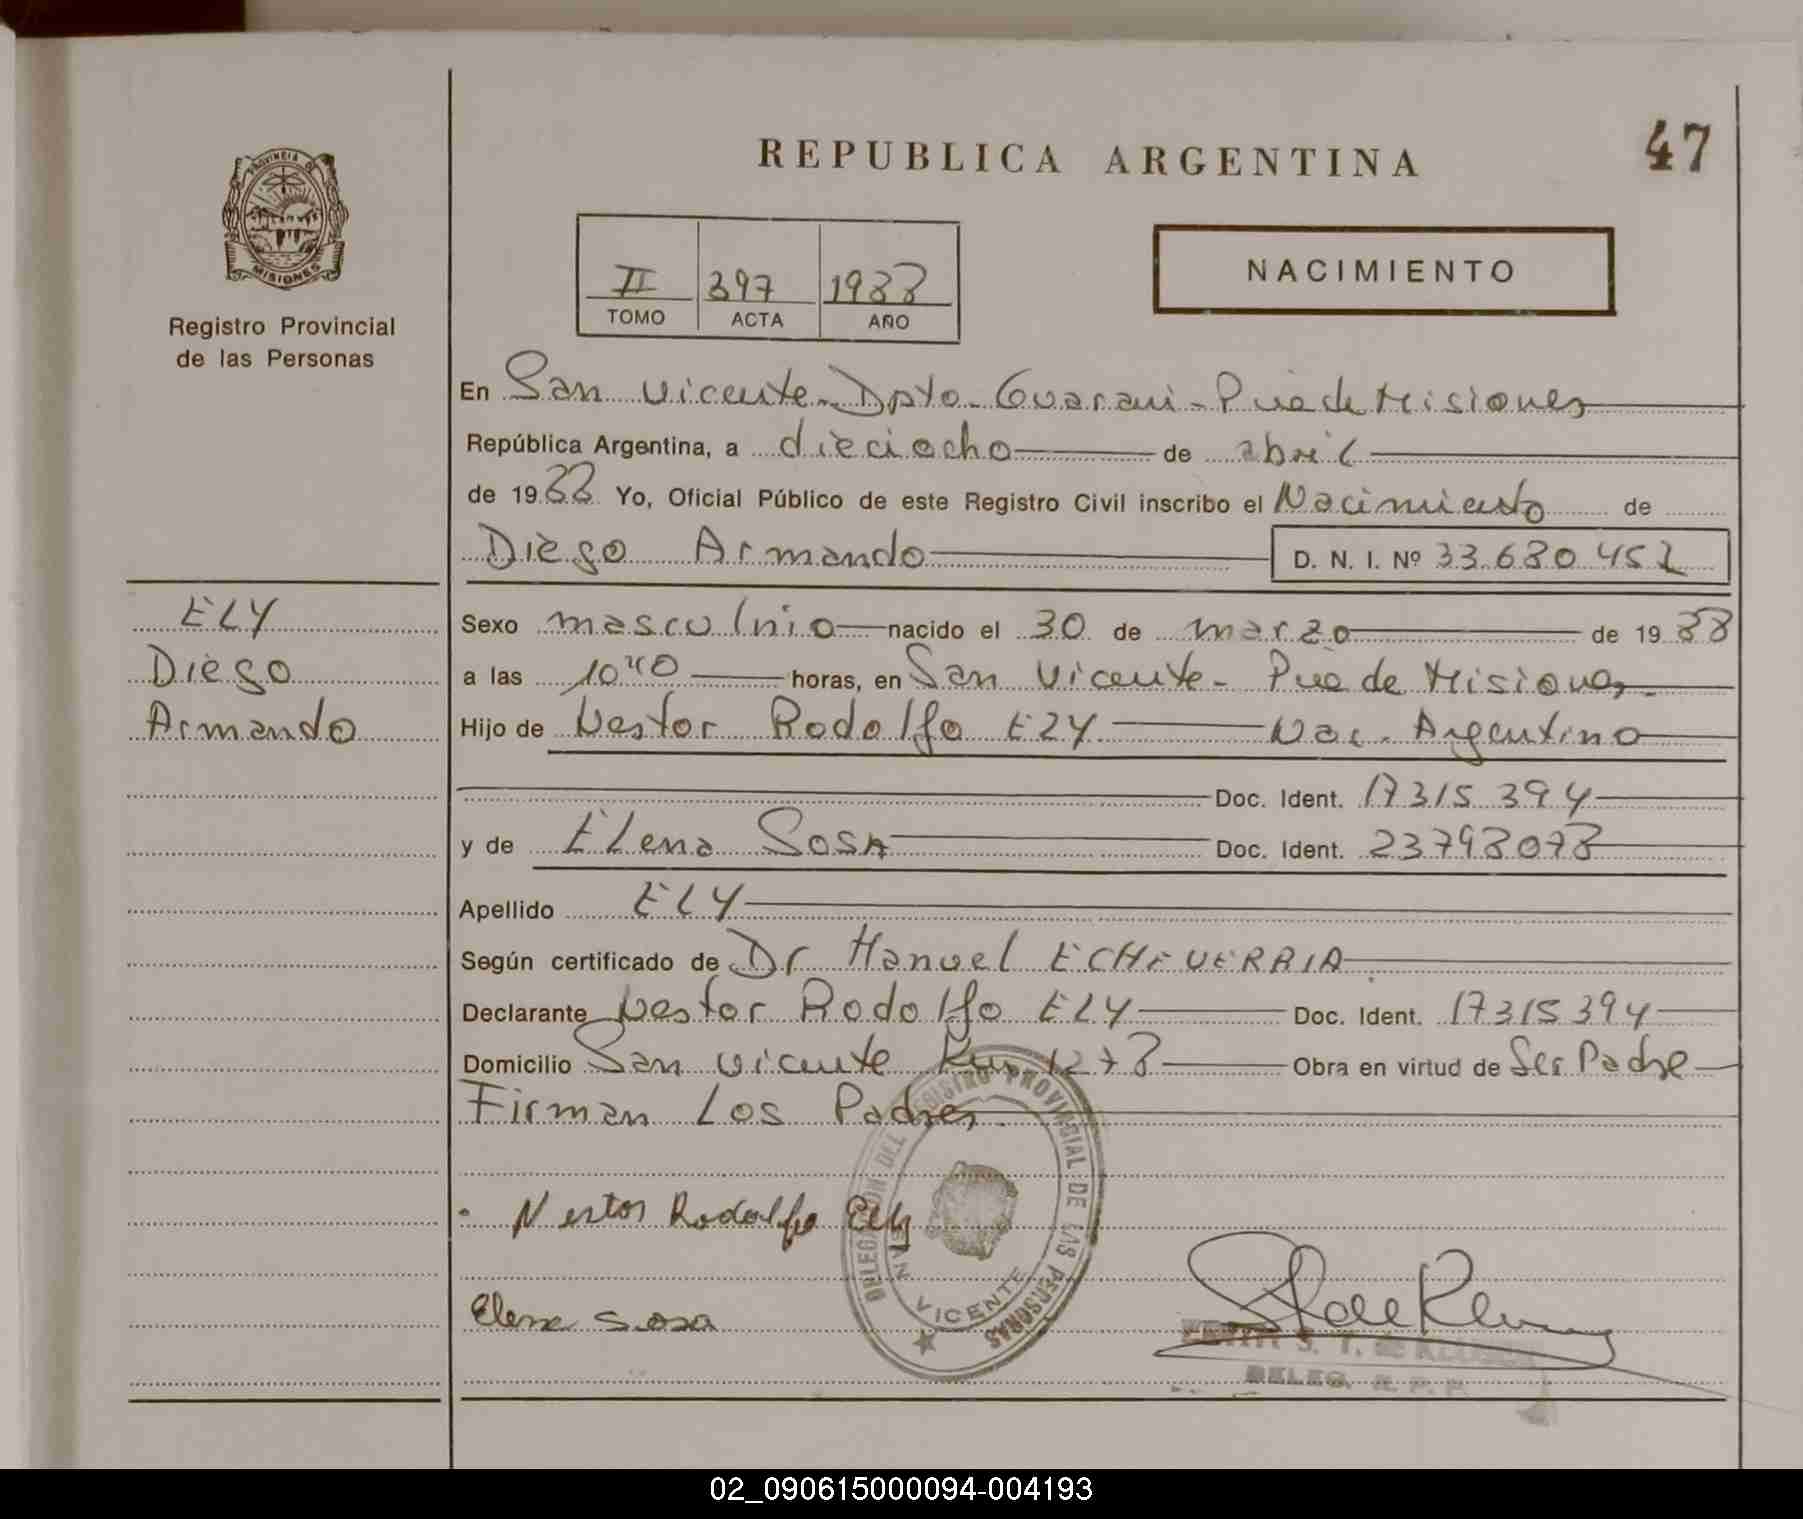 REPUBLICA ARGENTINA
47
PROVINCIA DE
MISIONES
Registro Provincial
de las Personas
II 397 1988
TOMO ACTA AÑO
NACIMIENTO
En San Vicente - Dpto - Guarani - Pcia de Misiones
República Argentina, a dieciocho de abril
de 1988 Yo, Oficial Público de este Registro Civil inscribo el Nacimiento de
Diego Armando D. N. I. Nº 33.680.452
ELY
Diego
Armando
Sexo masculino nacido el 30 de marzo de 1988
a las 10 40 horas, en San Vicente - Pcia de Misiones
Hijo de Nestor Rodolfo ELY Nac. Argentino
Doc. Ident. 17315394
y de ELena SOSA Doc. Ident. 23798078
Apellido ELY
Según certificado de Dr Manuel ECHEVERRIA
Declarante Nestor Rodolfo ELY Doc. Ident. 17315394
Domicilio San Vicente Km 1278 Obra en virtud de Ser Padre
Firman Los Padres
Nestor Rodolfo Ely
Elena Sosa
DELEGACION DEL REGISTRO PROVINCIAL DE LAS PERSONAS
SAN VICENTE
S. T. de
DELEG. R. P. P.
02_090615000094-004193